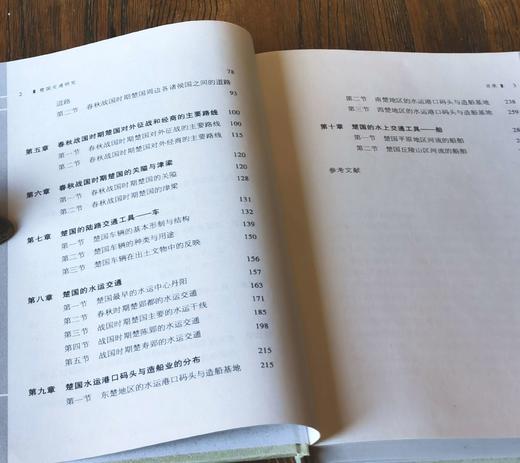 2 楚国交通研究
道路 78
第二节 春秋战国时期楚国周边各诸侯国之间的道路 93
第五章 春秋战国时期楚国对外征战和经商的主要路线 100
第一节 春秋战国时期楚国对外征战的主要路线 100
第二节 春秋战国时期楚国对外经商的主要路线 115
第六章 春秋战国时期楚国的关隘与津梁 120
第一节 春秋战国时期楚国的关隘 120
第二节 春秋战国时期楚国的津梁 128
第七章 楚国的陆路交通工具——车 132
第一节 楚国车辆的基本形制与结构 131
第二节 楚国车辆的种类与用途 144
第三节 楚国车辆在出土文物中的反映 150
第八章 楚国的水运交通 156
第一节 楚国最早的水运中心丹阳 157
第二节 春秋时期楚郢都的水运交通 163
第三节 战国时期楚国主要的水运干线 171
第四节 战国时期楚陈郢的水运交通 185
第五节 战国时期楚寿郢的水运交通 198
第九章 楚国水运港口码头与造船业的分布 215
第一节 东楚地区的水运港口码头与造船基地 215
目录 3
第二节 南楚地区的水运港口码头与造船基地 240
第三节 西楚地区的水运港口码头与造船基地 259
第十章 楚国的水上交通工具——船
第一节 楚国平原地区河流的船舶
第二节 楚国丘陵山区河流的船舶
参考文献